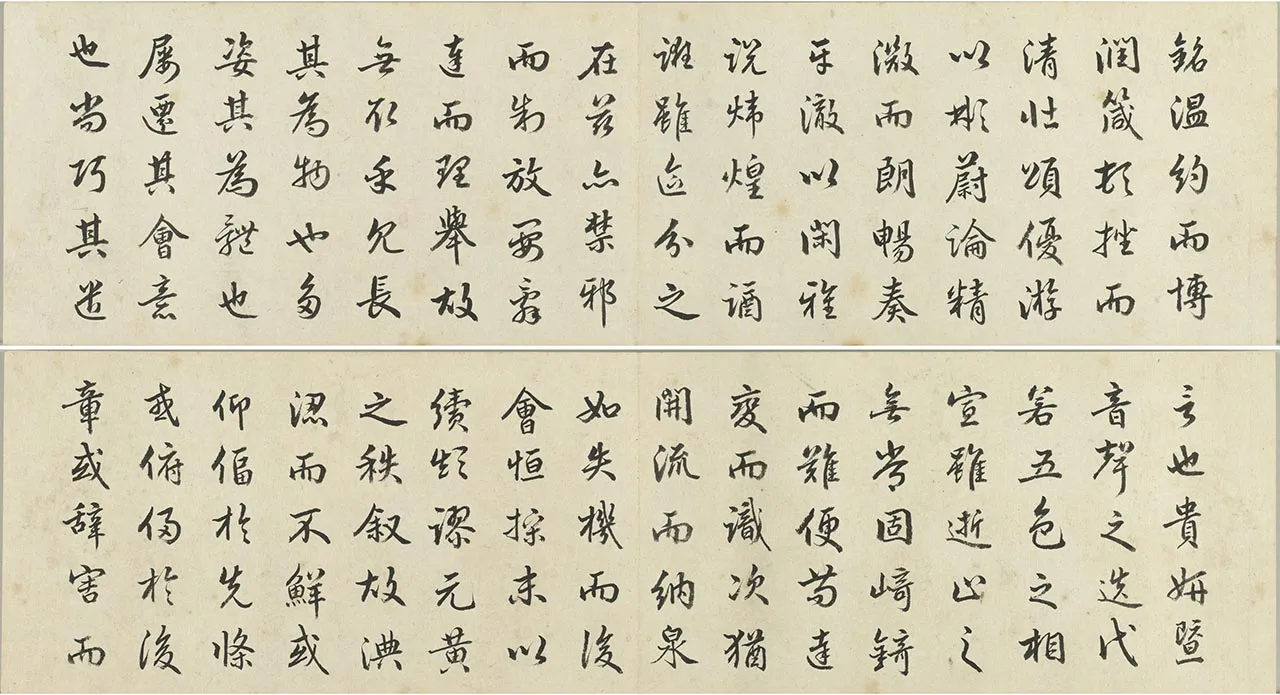 銘温約而博
潤箴頓挫而
清壯頌優游
以彬蔚論精
微而朗暢奏
平澈以閑雅
説煒煌而譎
誑雖區分之
在茲亦禁邪
而制放要辭
達而理舉故
無取乎冗長
其為物也多
姿其為體也
屢遷其會意
也尚巧其遣
言也貴妍暨
音聲之迭代
若五色之相
宣雖逝止之
無常固崎錡
而難便苟達
變而識次猶
開流而納泉
如失機而後
會恒操末以
續顛謬元黄
之秩叙故淟
涊而不鮮或
仰偪於先條
或俯侵於後
章或辭害而